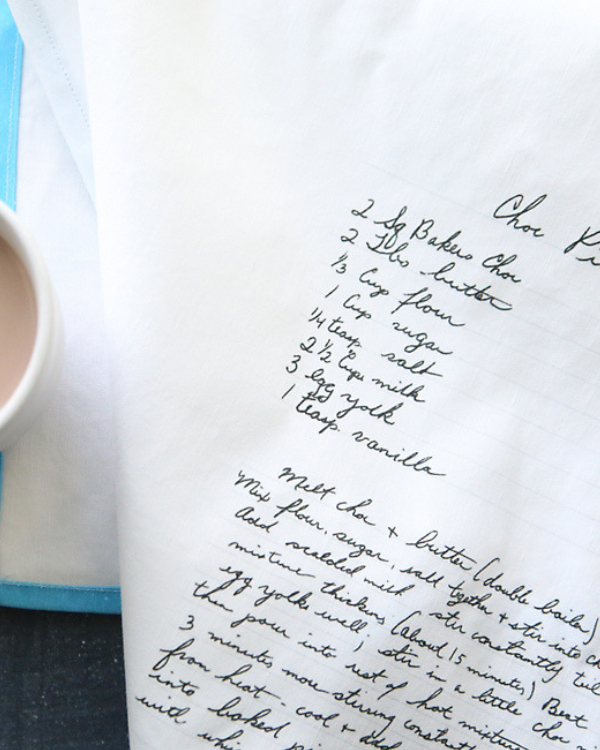 Choc Pi
2 Sq Bakers Choc
2 Tbs butter
1/3 Cup flour
1 Cup sugar
1/4 teasp salt
2 1/2 Cups milk
3 egg yolk
1 teasp vanilla
Melt choc + butter (double boiler)
Mix flour, sugar, salt together + stir into ch
Add scalded milk stir constantly til
mixture thickens (about 15 minutes) Beat
egg yolks well; stir in a little choc m
then pour into rest of hot mixture
3 minutes more stirring constant
from heat - cool + add
into baked pi
with whi